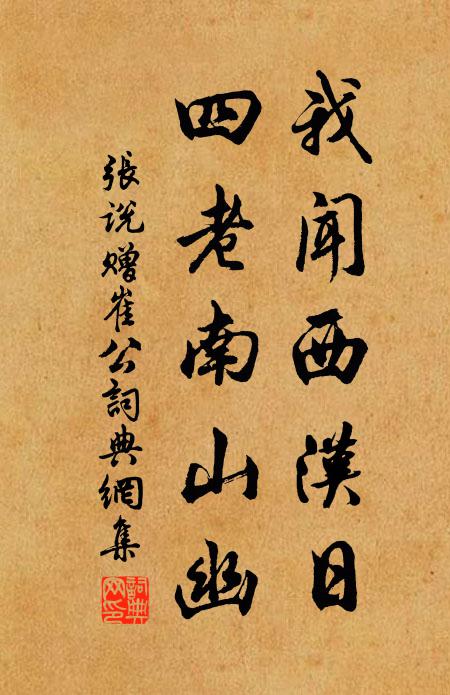 我闻西汉日
四老南山幽
張説贈崔公詞典網集
詞典网印